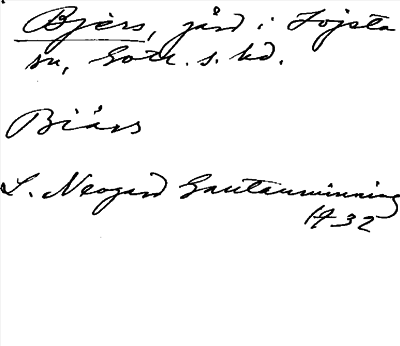 Bjers, gård i Lojsta
sn, Gotl. s. hd.
Biärs
L. Neogard Gautauminning
A 32